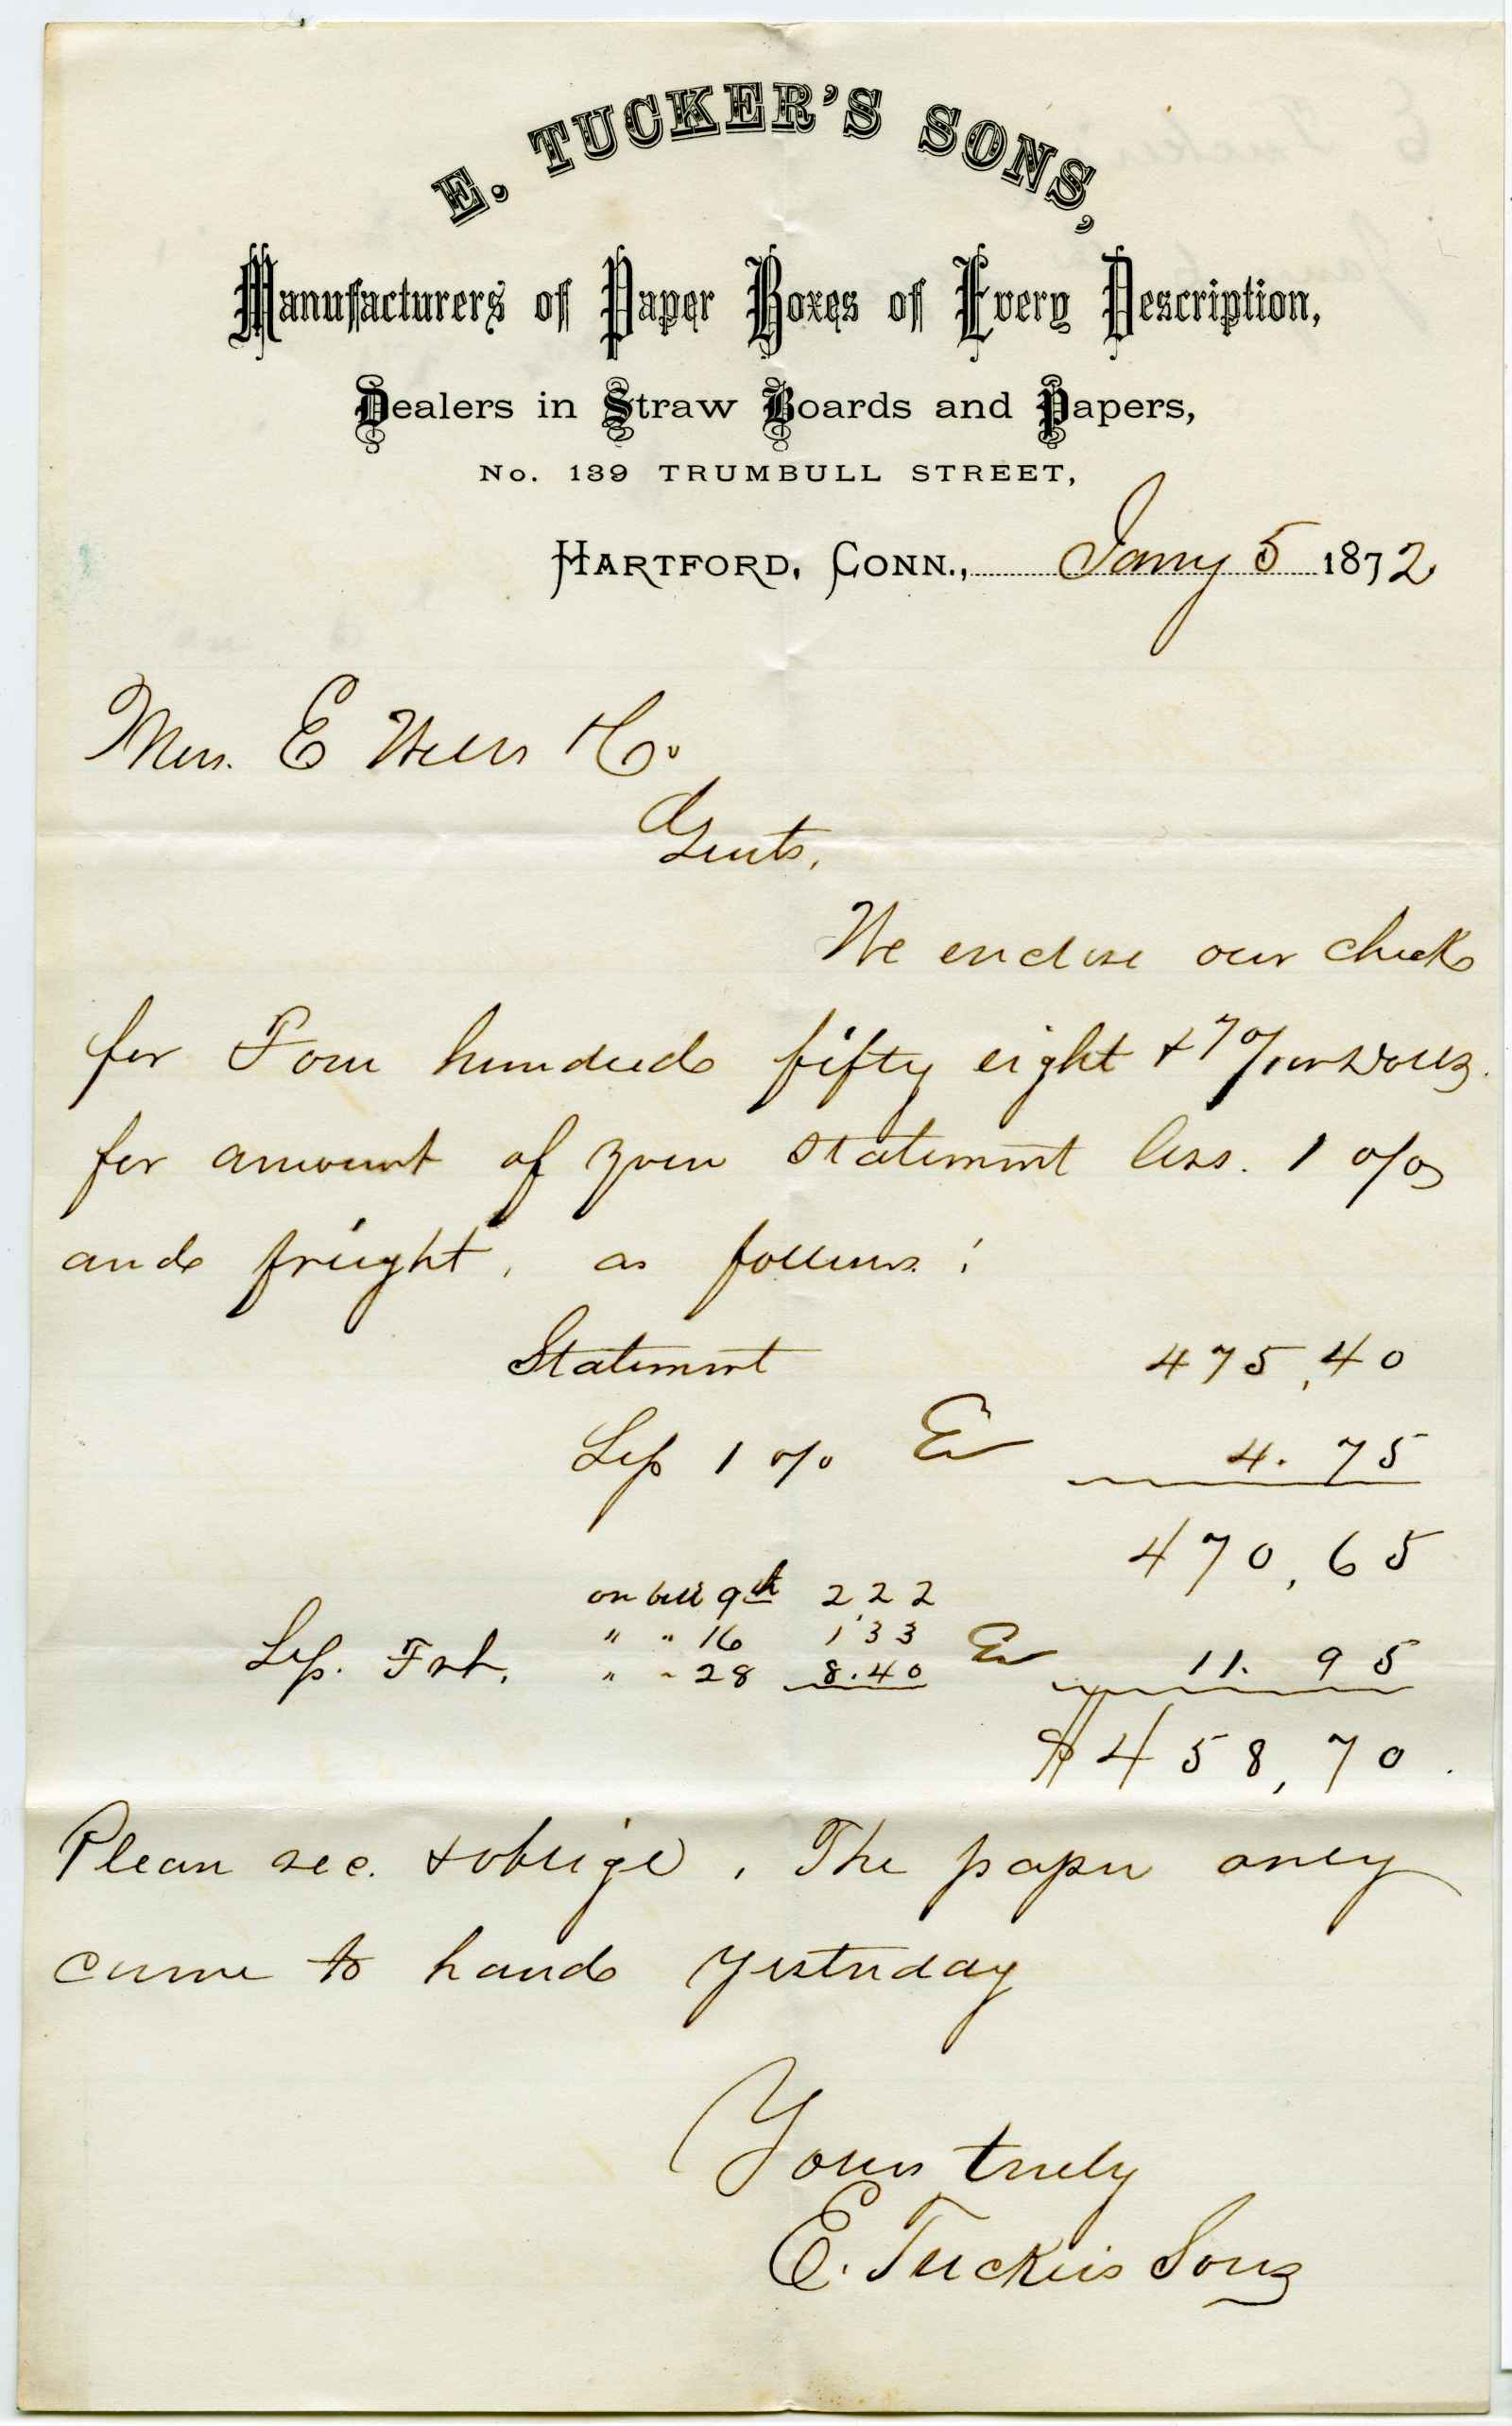 E. TUCKER'S SONS,
Manufacturers of Paper Boxes of Every Description,
Dealers in Straw Boards and Papers,
No. 139 TRUMBULL STREET,
HARTFORD, CONN., Jany 5 1872
Mess. E Wells & Co.
Gents.
We enclose our check
for Four hundred fifty eight + 70/100 Dolls.
for amount of your statement less. 1 o/o
and freight, as follows:
Statement 475,40
Less 1 o/o 4.75
470,65
on bill 9th 2,22
" " 16 1,33
Less. Frt. " " 28 8.40 11.95
$458,70.
Please rec. & oblige. The paper only
came to hand yesterday
Yours truly
E. Tucker's Sons